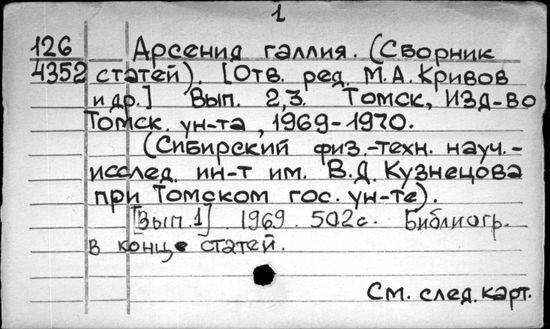 1
126 Арсенид галлия. (Сборник
4352 статей). [Отв. ред. М.А. Кривов
и др.] Вып. 2,3. Томск, Изд-во
Томск. ун-та, 1969-1970.
(Сибирский физ.-техн. науч.-
исслед. ин-т им. В.Д. Кузнецова
при Томском гос. ун-те).
[Вып. 1] 1969. 502с. Библиогр.
в конце статей.
См. след. карт.